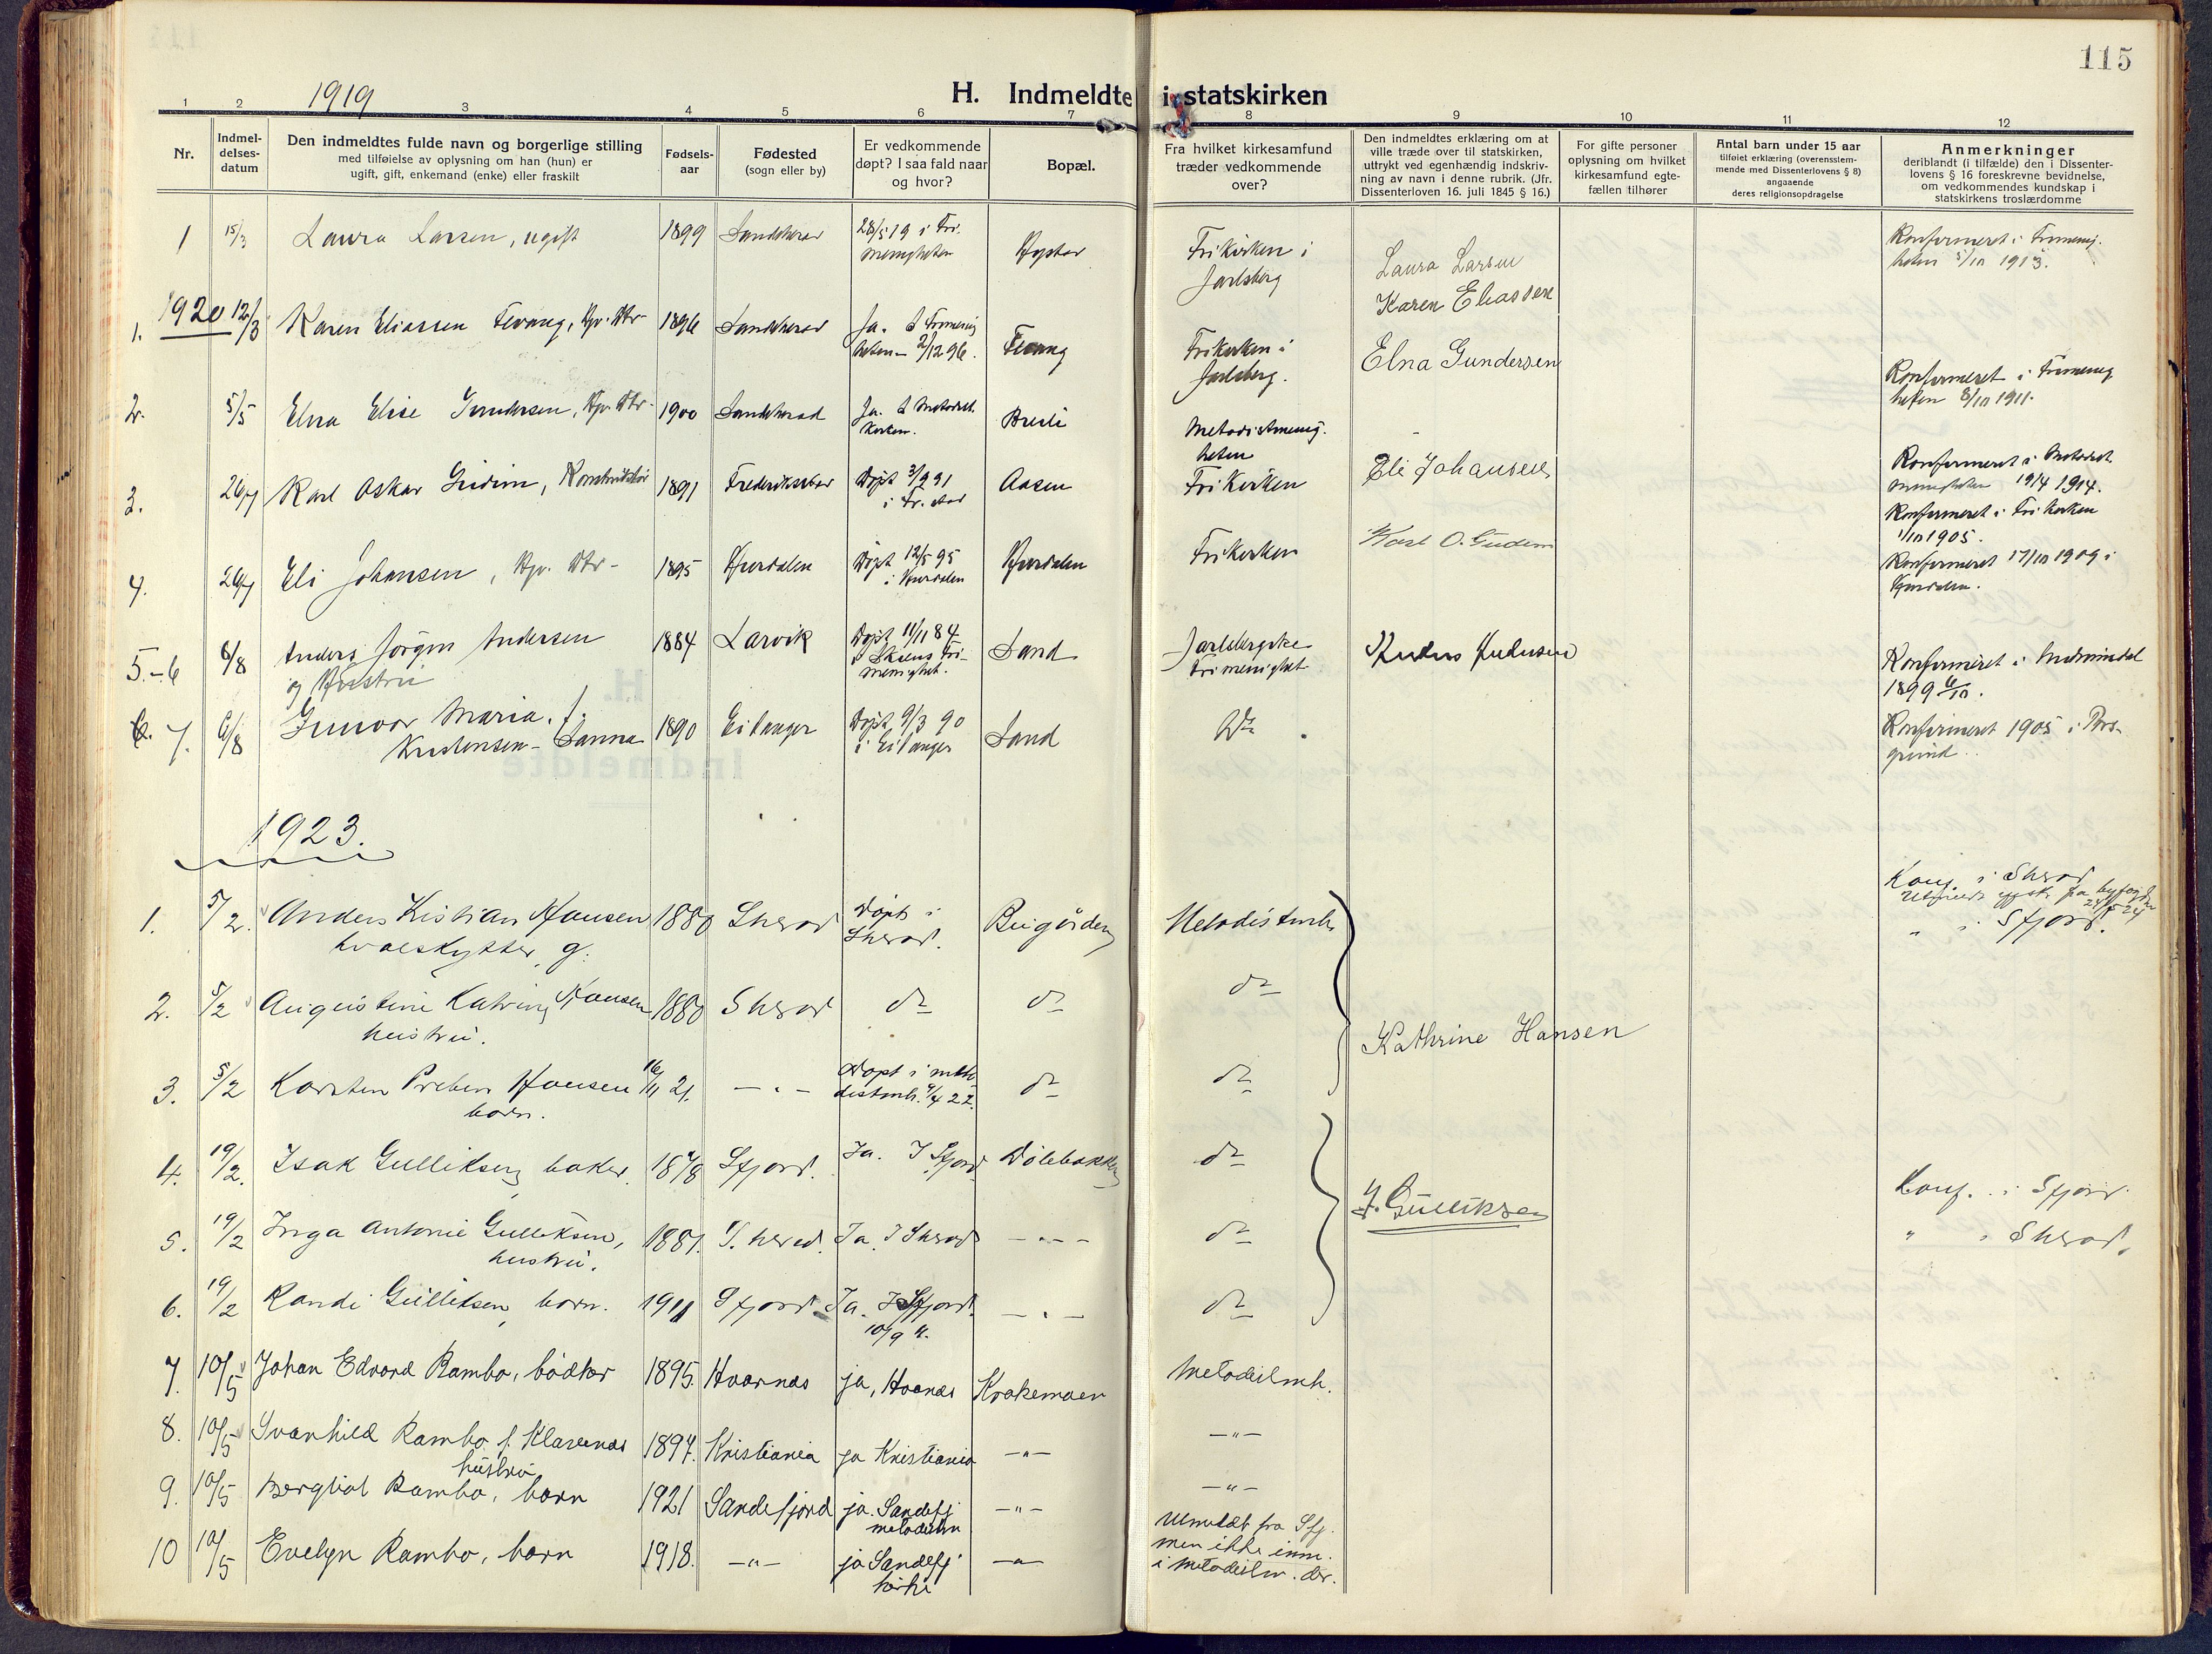 115
1919
H. Indmeldte i statskirken
1 2 3 4 5 6 7 8 9 10 11 12
Nr.
Indmel-
delses-
datum
Den indmeldtes fulde navn og borgerlige stilling
med tilføielse av oplysning om han (hun) er
ugift, gift, enkemand (enke) eller fraskilt
Fødsels-
aar
Fødested
(sogn eller by)
Er vedkommende
døpt? I saa fald naar
og hvor?
Bopæl.
Fra hvilket kirkesamfund
træder vedkommende
over?
Den indmeldtes erklæring om at
ville træde over til statskirken,
uttrykt ved egenhændig indskriv-
ning av navn i denne rubrik. (Jfr.
Dissenterloven 16. juli 1845 § 16.)
For gifte personer
oplysning om hvilket
kirkesamfund egte-
fællen tilhører
Antal barn under 15 aar
tilføiet erklæring (overensstem-
mende med Dissenterlovens § 8)
angaaende
deres religionsopdragelse
Anmerkninger
deriblandt (i tilfælde) den i Dissenter-
lovens § 16 foreskrevne bevidnelse,
om vedkommendes kundskap i
statskirkens troslærdomme
1 15/3 Laura Larsen, ugift 1899 Sandeherad 28/5 19 i Fri-
menigheten
Frikirken i
Jarlsberg
Laura Larsen
Konfirmeret i Frimenig-
heten 5/10 1913.
1920
1. 12/3 Karen Eliassen 1896 Sandeherad Ja. I Frimenig
heten 2/12 96.
Frikirken i
Jarlsberg.
Karen Eliassen
Konfirmeret i Frimenig
heten 8/10 1911.
2. 5/5 Elna Elise Gundersen, 1900 Sandeherad Ja. I Metodist
kirken.
Metodistmenig-
heten
Elna Gundersen
Konfirmeret i Metodist
menigheten 19/4 1914.
3. 26/7 Karl Oskar 1891 Frederikstad Døpt 3/9 91
i Fr. stad
Aasen
Frikirken
Eli Johansen
Konfirmeret i Frikirken
1/10 1905.
4. 26/7 Eli Johansen, 1895 Hurdalen Døpt 12/5 95
i Hurdalen
Hurdalen
Frikirken
Karl O.
Konfirmeret 17/10 1909 i
Hurdalen.
5.-6 6/8 Anders Jörgen Andersen
og Hustru
1884 Larvik Døpt 11/11 84
i Skiens Fri-
menighet.
Sand
Jarlsbergske
Frimenighet
Konfirmeret i
1899 6/10.
7. 6/8 Gunvor Maria. f.
Kristensen - Sanna
1890 Eidanger Døpt 9/3 90
i Eidanger
Sand
do
Konfirmeret 1905 i Pors-
grund.
1923.
1. 5/2. Anders Kristian Hansen
hvalskytter, g.
1880 Sherad Døpt i
Sherad.
Bugården
Metodistmh.
Konf. i Sherad
" i Sfjord.
2. 5/2 Augustine Katrine Hansen
hustru.
1880 Sherad do do
do
Kathrine Hansen
3. 5/2 Karsten Preben Hansen
barn.
16/11 21. — " — Døpt i meto-
distmh. 9/4 22.
do
do
4. 19/2. Isak Gulliksen, baker. 1878 Sfjord. Ja. I Sfjord Dølebakken
do
I. Gulliksen
Konf. i Sfjord.
5. 19/2 Inga Antonie Gulliksen,
hustru.
1881. S. herad. Ja. I Sherad — " —
do
" i Sherad.
6. 19/2 Randi Gulliksen, barn. 1911 Sfjord Ja. I Sfjord.
10/9 11.
— " —
do
7. 10/5 Johan Edvard Rambo, bødker 1895. Hvarnes ja, Hvarnes Krakemoen
Metodistmh.
8. 10/5 Svanhild Rambo f. Klavenes
hustru
1897. Kristiania ja Kristiania — " —
— " —
9. 10/5 Bergliot Rambo, barn 1921 Sandefjord ja. Sandefj
metodistm
— " —
— " —
10 10/5 Evelyn Rambo, barn 1918. — " — ja Sandefj.
kirke
— " —
Utmeldt fra Sfj.
men ikke inm.
i metodistm. der.